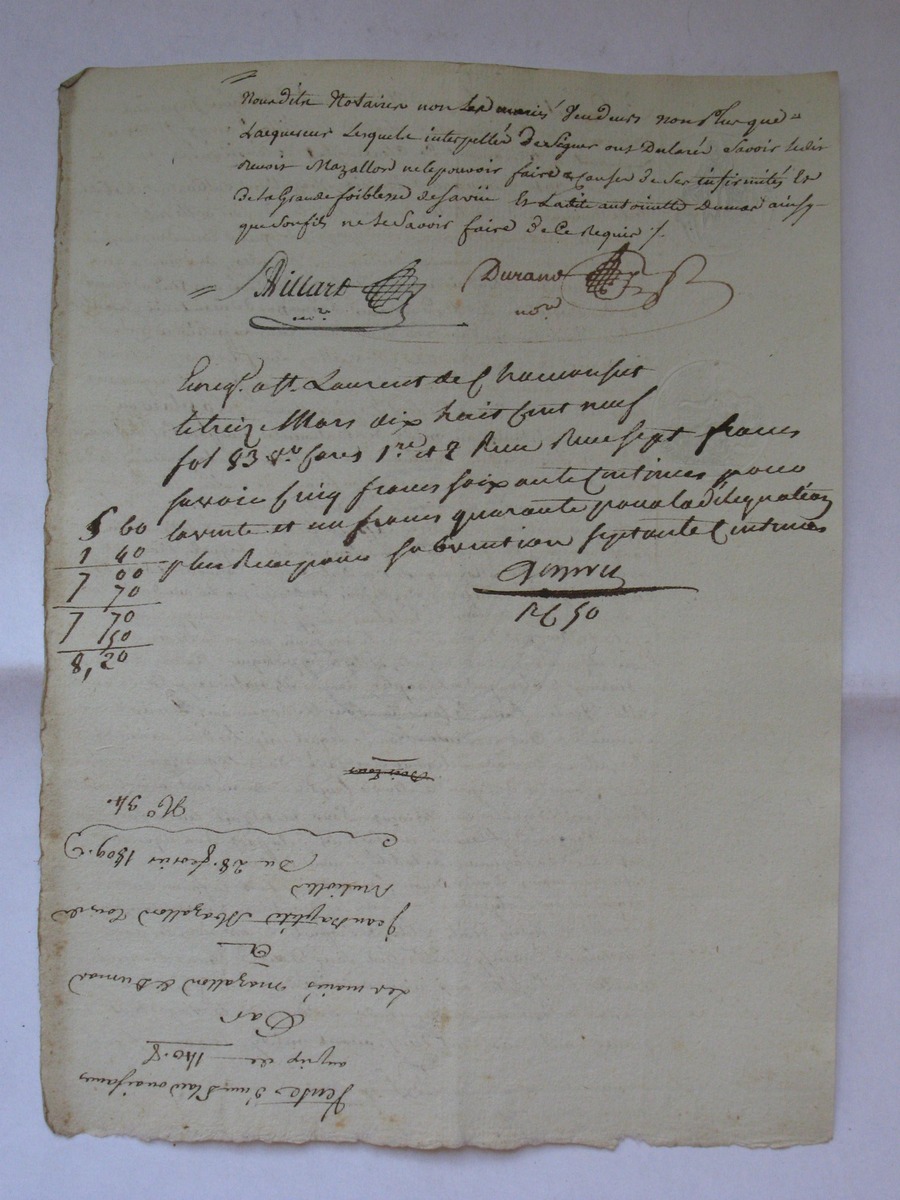 Nousdits Notaires non les mariés Vendeurs non plus que
Lacquereur Lesquels interpellés de Signer ont Déclaré Savoir ledit
Benoit Mazallon ne le pouvoir faire a Cause de Ses infirmités Et
De la Grande foiblesse de sa vüe Et Ladite antoinette Dumas ainsy
que Son fils ne le Savoir faire De Ce Requis ./.
Billart Durand
nore nore
Enregt. a St. Laurent de Chamousset
le treize Mars dix huit Cent neuf
fol 83 vo Cares 1re et 2 Reçu sept francs
savoir Cinq francs soixante Centimes pour
la vente et un franc quarante pour la délégation
plus Reçu pour subvention septante Centimes
5 60
1 40
7 00
70
7 70
50
8, 20
50
No 34.
Du 28. fevrier 1809.
Jean Baptiste Mazallon
A
Les mariés mazallon & Dumas
Par
au prix de 140. f
Vente D'un